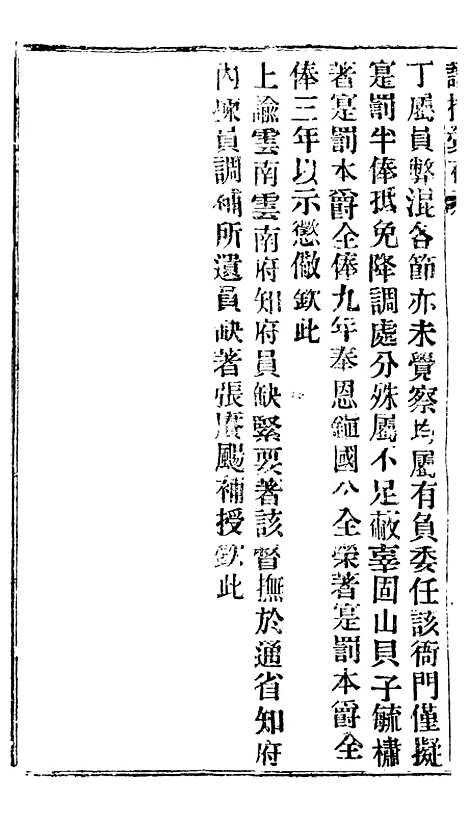 丁屬員弊混各節亦未覺察均屬有負委任該衙門僅擬
寔罰半俸抵免降調處分殊屬不足蔽辜固山貝子毓橚
著寔罰本爵全俸九年奉恩鎮國公全榮著寔罰本爵全
俸三年以示懲儆欽此
上諭雲南雲南府知府員缺緊要著該督撫於通省知府
內揀員調補所遺員缺著張廣颺補授欽此